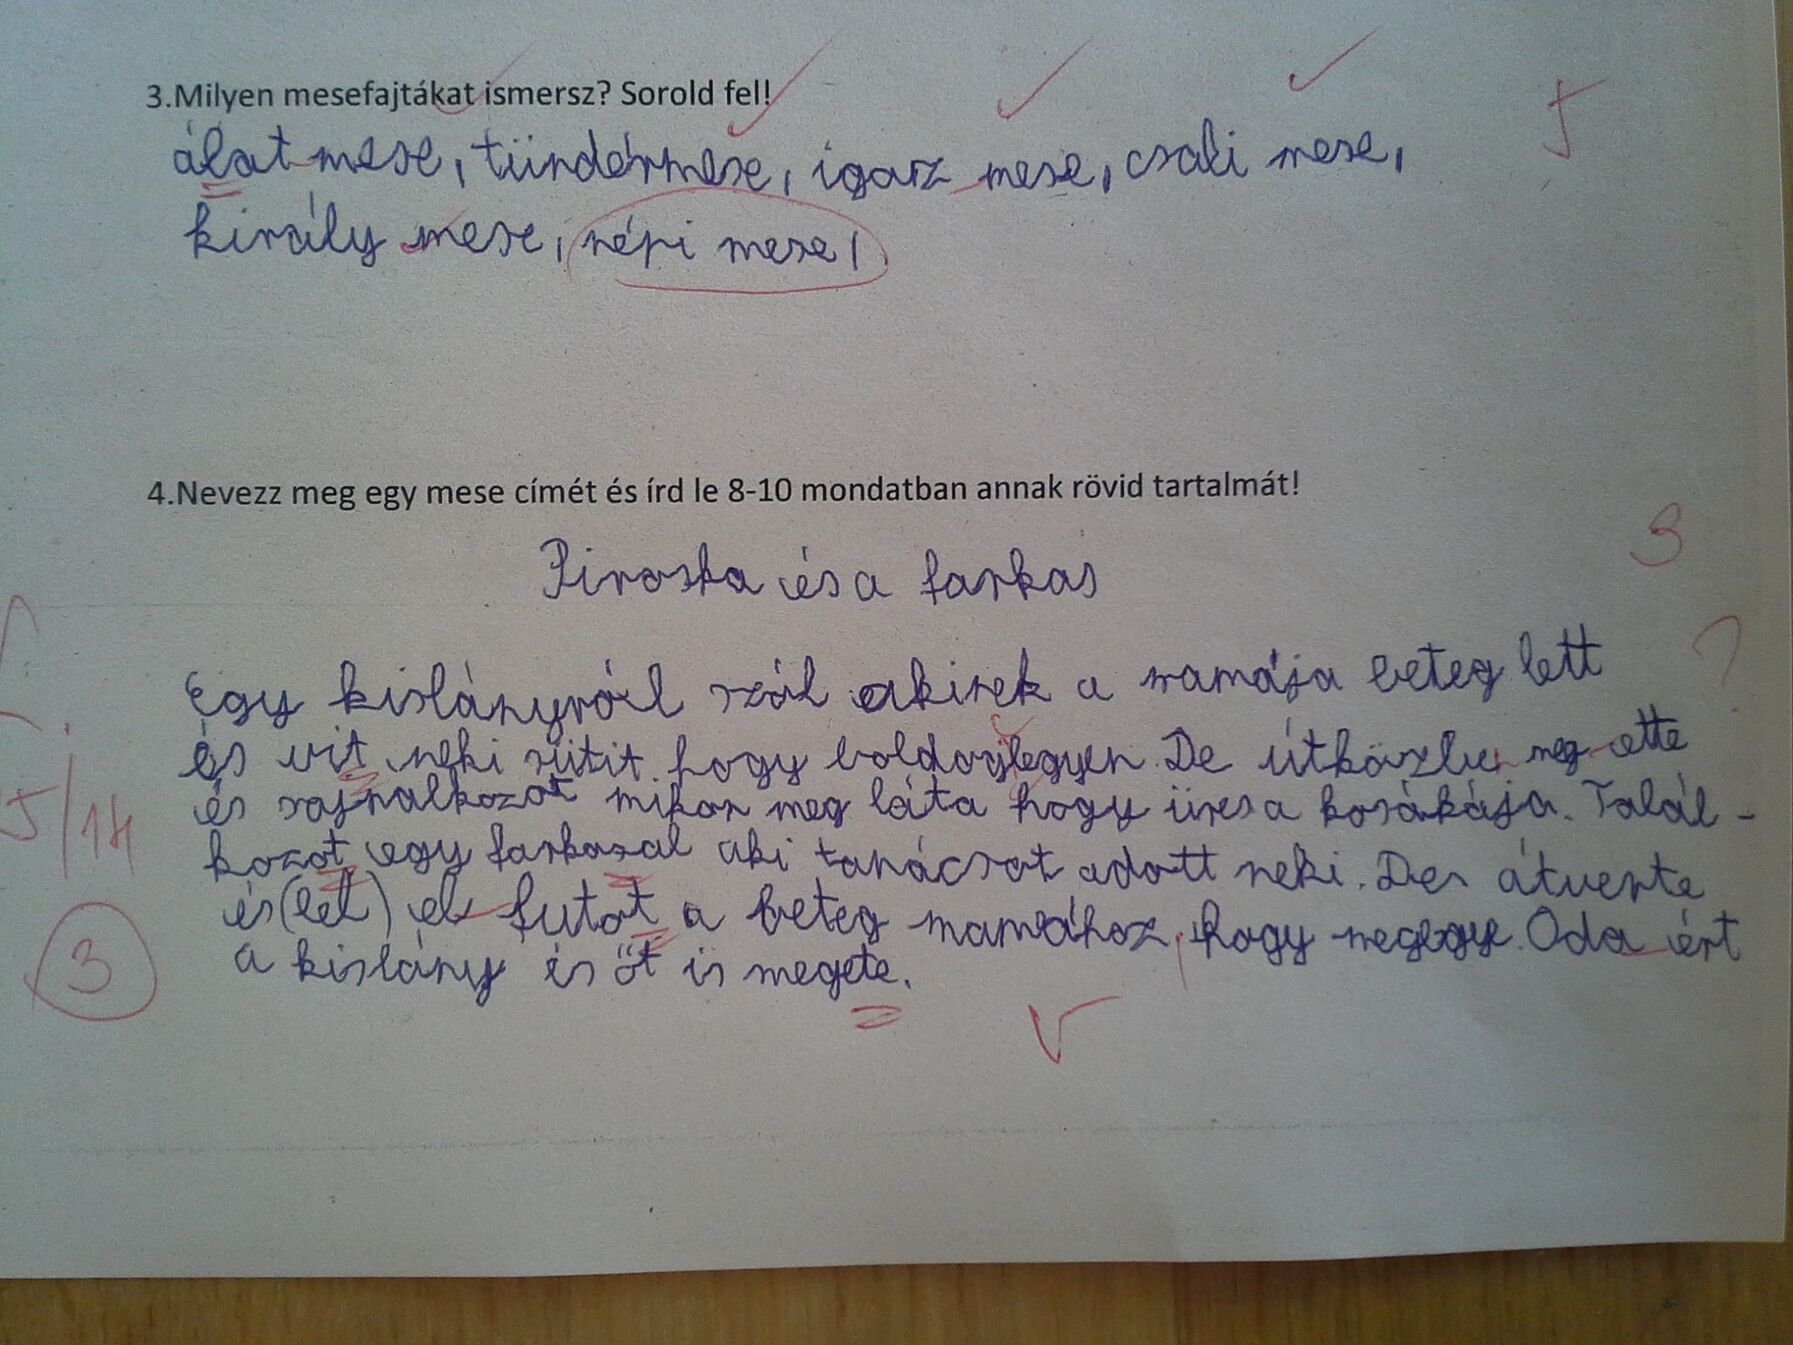 3.Milyen mesefajtákat ismersz? Sorold fel!
álat mese, tündérmese, igaz mese, csali mese,
király mese, népi mese,
5
4.Nevezz meg egy mese címét és írd le 8-10 mondatban annak rövid tartalmát!
3
Piroska és a farkas
Egy kislányról szól akinek a mamája beteg lett ?
és vit neki sütit hogy boldog legyen. De útközbe meg ette
és sajnalkozot mikor meg láta hogy üres a kosárkája. Talál-
5/14
kozot egy farkasal aki tanácsot adott neki. De átverte
és (lel) el futot a beteg mamához, hogy megegye. Oda ért
3
a kislány és őt is megete.